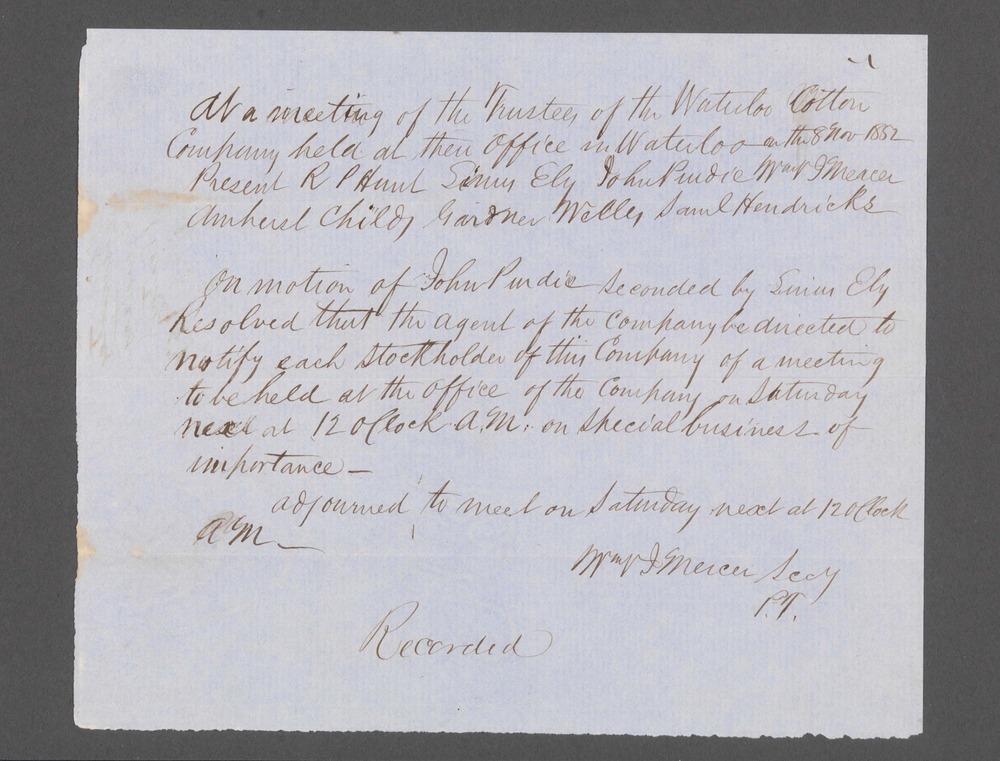 At a meeting of the Trustees of the Waterloo Cotton
Company held at their Office in Waterloo on the 8th Nov 1852
Present R P Hunt Linus Ely John Purdie Wm J Mercer
Amherst Childs Gardner Welles Saml Hendricks
On motion of John Purdie seconded by Linus Ely
Resolved that the agent of the Company be directed to
notify each Stockholder of this Company of a meeting
to be held at the Office of the Company on Saturday
next at 12 OClock A.M. on special business of
importance —
adjourned to meet on Saturday next at 12 OClock
A M —
Wm J Mercer Secy
P.T.
Recorded